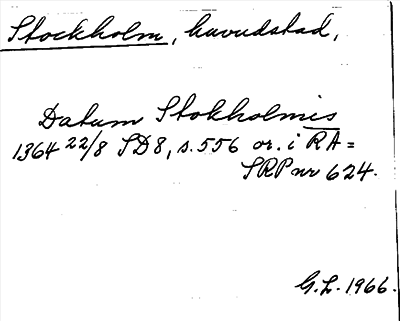 Stockholm, huvudstad,
Datum Stokholmis
1364 22/8 SD8, s. 556 or. i RA =
SRP nr 624.
G.L. 1966.